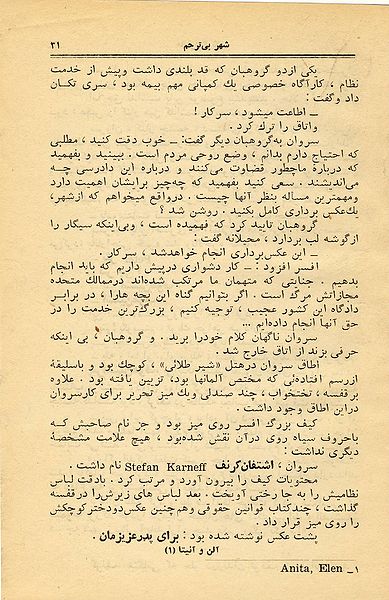 شهر بی‌ترحم
۳۱
یکی ازدو گروهبان که قد بلندی داشت وپیش از خدمت
نظام ، کارآگاه خصوصی یك کمپانی مهم بیمه بود ، سری تکان
داد وگفت :
ــ اطاعت میشود ، سرکار !
واتاق را ترك کرد .
سروان به‌گروهبان دیگر گفت : ــ خوب دقت کنید ، مطلبی
که احتیاج دارم بدانم ، وضع روحی مردم است . ببینید و بفهمید
که درباره ماچطور قضاوت می‌کنند و درباره این دادرسی چه
می‌اندیشند . سعی کنید بفهمید که چه‌چیز برایشان اهمیت دارد
ومهمترین مساله بنظر آنها چیست . درواقع میخواهم که ازشهر،
یك‌عکس برداری کامل بکنید . روشن شد ؟
گروهبان تایید کرد که فهمیده است ، وبی‌اینکه سیگار را
ازگوشه لب بردارد ، محیلانه گفت :
ــ این عکس‌برداری انجام خواهدشد ، سرکار .
افسر افزود : ــ کار دشواری درپیش داریم که باید انجام
بدهیم . جنایتی که متهمان ما مرتکب شده‌اند درممالك متحده
مجازاتش مرگ است . اگر بتوانیم گناه این بچه هارا ، در برابر
دادگاه این کشور عجیب ، توجیه کنیم ، بزرگ‌ترین خدمت را در
حق آنها انجام داده‌ایم ...
سروان ناگهان کلام خودرا برید . و گروهبان ، بی اینکه
حرفی بزند از اتاق خارج شد .
اطاق سروان درهتل «شیر طلائی» ، کوچك بود و باسلیقهٔ
ازرسم افتاده‌ئی که مختص آلمانها بود، تزیین یافته بود . علاوه
برقفسه ، تختخواب ، چند صندلی ویك میز تحریر برای کارسروان
دراین اطاق وجود داشت .
کیف بزرگ افسر روی میز بود و جز نام صاحبش که
باحروف سیاه روی درآن نقش شده‌بود ، هیچ علامت مشخصهٔ
دیگری نداشت :
سروان ، اشتفان‌کرنف Stefan Karneff نام داشت .
محتویات کیف را بیرون آورد و مرتب کرد . بادقت لباس
نظامیش را به جا رختی آویخت . بعد لباس های زیرش‌را درقفسه
گذاشت ، چندکتاب قوانین حقوقی وهم‌چنین عکس دودخترکوچکش
را روی میز قرار داد .
پشت عکس نوشته شده بود : برای پدرعزیزمان .
آلن و آنیتا (۱)
۱ــ Anita, Elen